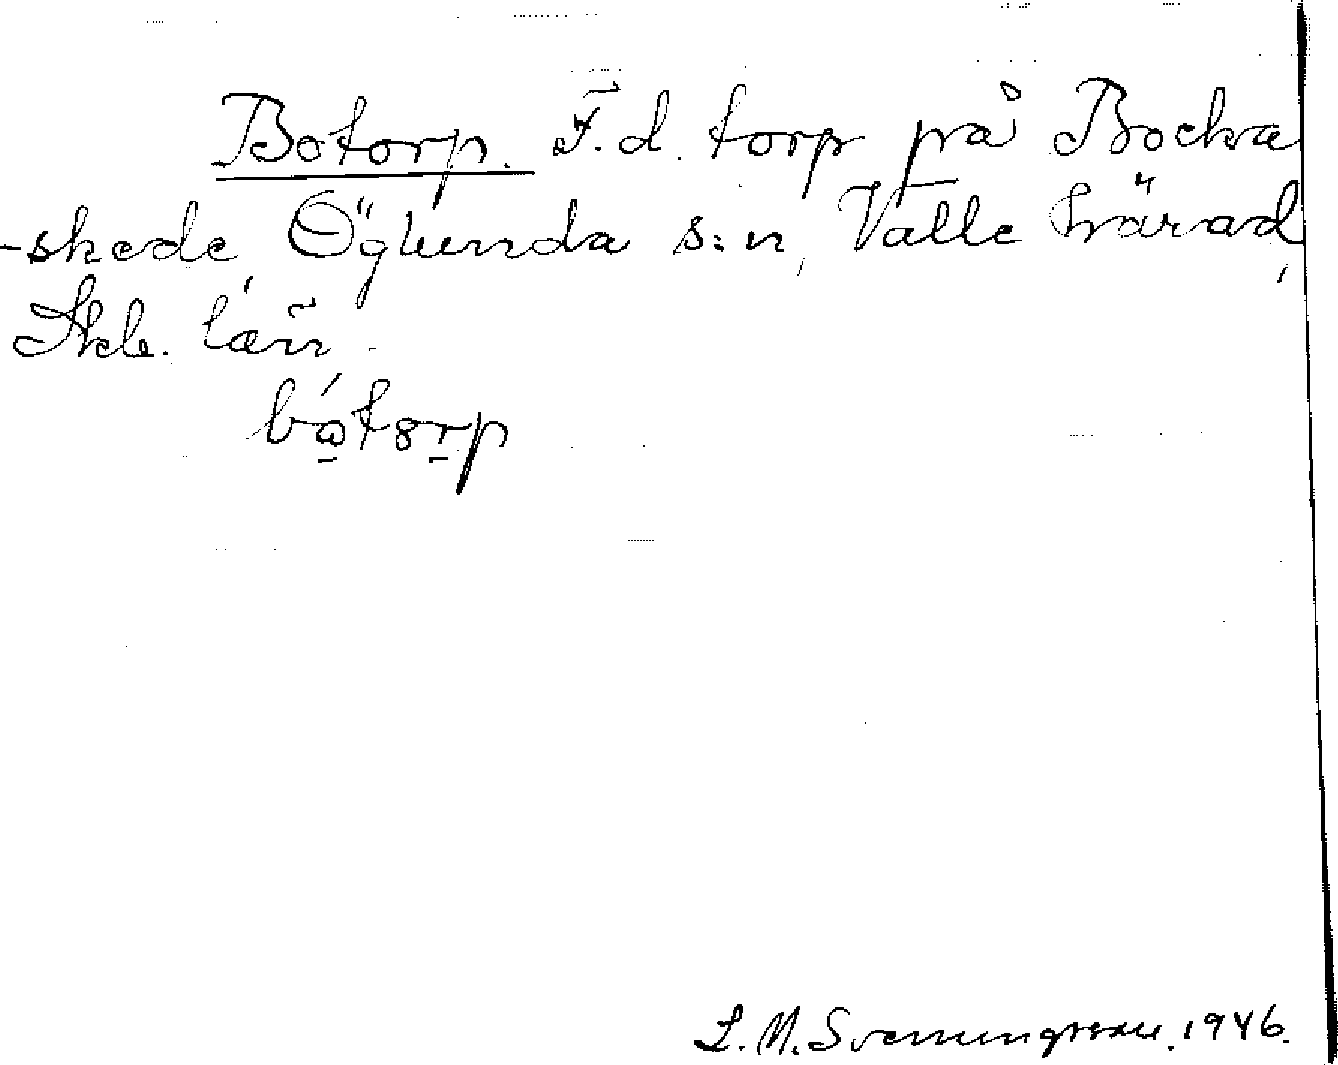 Botorp. F.d. torp på Bocka
-skede, Öglunda s:n, Valle härad,
Skb. län.
bótorp
S. M. Svenningsson. 1946.